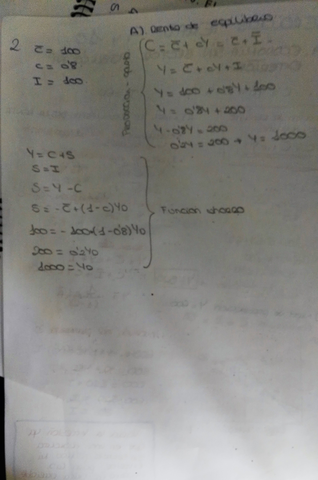 2
A) Renta de equilibrio
C̅ = 100
c = 0'8
I = 100
C = C̅ + cY = C̅ + I̅
Y = C̅ + cY + I
Y = 100 + 0'8Y + 100
Y = 0'8Y + 200
Y - 0'8Y = 200
0'2Y = 200 → Y = 1000
Y = C + S
S = I
S = Y - C
S = - C̅ + (1-c)Y0
100 = - 100 + (1-0'8)Y0
200 = 0'2Y0
1000 = Y0
Funcion ahorro